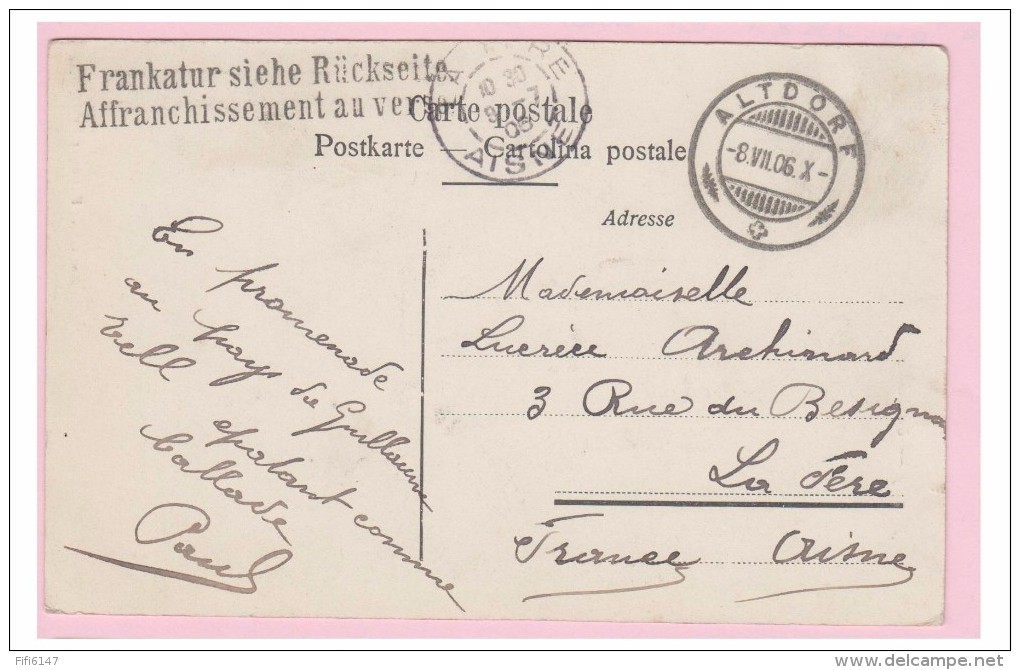 Frankatur siehe Rückseite
Affranchissement au verso
LA FERE
10 30
9 -7
06
AISNE
Carte postale
Postkarte — Cartolina postale
ALTDORF
-8.VII.06.X-
Adresse
En promenade
au pays de Guillaume
Tell epatant comme
ballade
Paul
Mademoiselle
Lucrèce Archinard
3 Rue du
La Fère
France Aisne
Fifi6147
www.delcampe.net